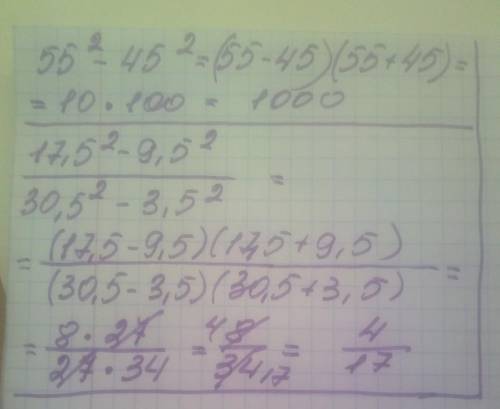 55² - 45² = (55 - 45)(55 + 45) =
= 10 · 100 = 1000
17,5² - 9,5²
30,5² - 3,5² =
= (17,5 - 9,5)(17,5 + 9,5)
(30,5 - 3,5)(30,5 + 3,5) =
= 8 · 27 = 4 8 = 4
27 · 34 34 17 17